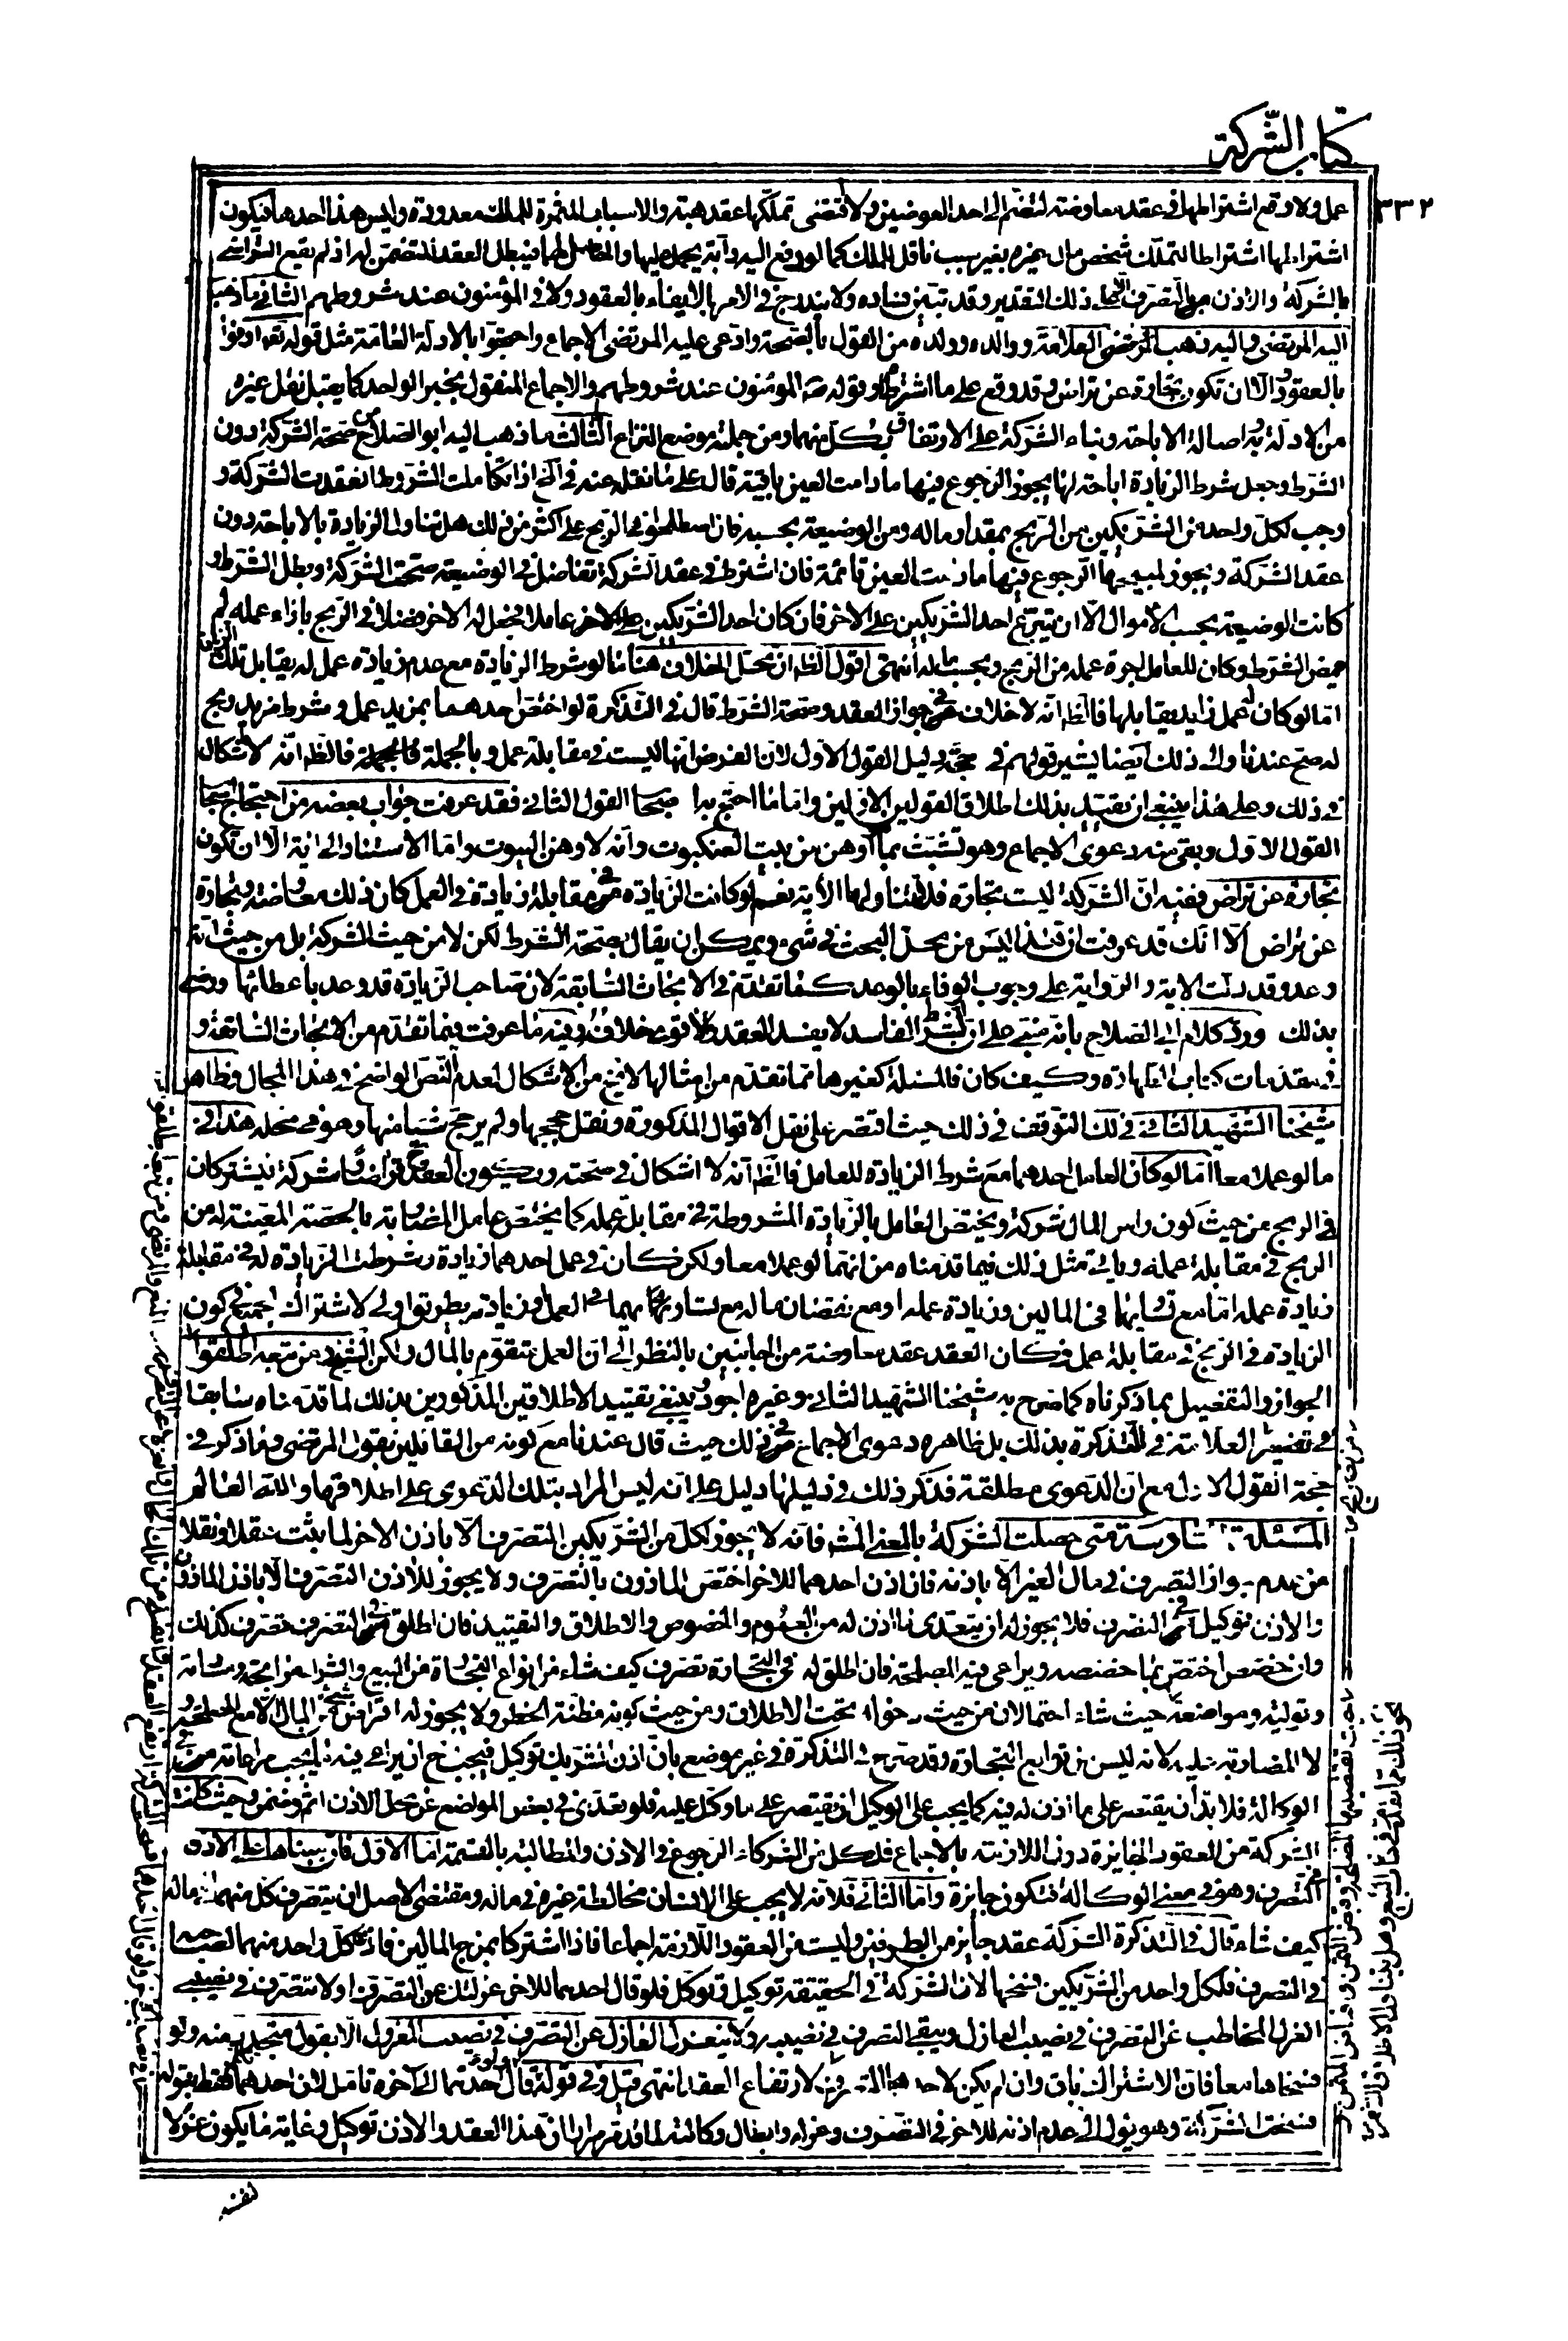 كتاب الشركة
٣٣٢
عمل ولا وقع اشتراطها في عقد معاوضة لتنضم الى احد العوضين ولا اقتضى تملكها عقد هبة والاسباب المثمرة للملك معدودة وليس هذا احدها فيكون
اشتراطها اشتراطا لتملك شخص مال غيره بغير سبب ناقل للملك كما لو دفع اليه دابة يحمل عليها والحاصل لهما فيبطل العقد المتضمن له اذ لم يقع التراضي
بالشركة والاذن في التصرف الا على ذلك التقدير وقد تبين فساده ولا يندرج في الامر بالايفاء بالعقود ولا في المؤمنون عند شروطهم الثاني ما ذهب
اليه المرتضى واليه ذهب العلامة ووالده وولده من القول بالصحة وادعى عليه المرتضى الاجماع واحتجوا بالادلة العامة مثل قوله تعه اوفوا
بالعقود الا ان تكون تجارة عن تراض وقد وقع على ما اشترطا وقوله صه المؤمنون عند شروطهم والاجماع المنقول بخبر الواحد كما يقبل نقل غيره
من الادلة به اصالة الاباحة وبناء الشركة على الارتفاق بكل منهما ومن جملته موضع النزاع الثالث ما ذهب اليه ابو الصلاح من صحة الشركة دون
الشرط وجعل شرط الزيادة اباحة لها يجوز الرجوع فيها ما دامت العين باقية قال على ما نقله عنه في لخ اذا تكاملت الشروط انعقدت الشركة و
وجب لكل واحد من الشريكين من الربح بمقدار ماله ومن الوضيعة بحسبه فان اصطلحوا في الربح على اكثر من ذلك حل تناول الزيادة بالاباحة دون
عقد الشركة ويجوز لمبيحها الرجوع فيها ما دامت العين قائمة فان اشترط في عقد الشركة تفاضل في الوضيعة صحت الشركة وبطل الشرط و
كانت الوضيعة بحسب الاموال الا ان يتبرع احد الشريكين على الاخر فان كان احد الشريكين عاملا فجعل له الاخر فضلا في الربح بازاء عمله لم
يمض الشرط وكان للعامل اجرة عمله من الربح وبحسب ماله انتهى اقول الظ ان محل الخلاف هنا ما لو شرط الزيادة مع عدم زيادة عمل له يقابل تلك الزيادة
اما لو كان له عمل زايد يقابلها فالظ انه لا خلاف في جواز العقد وصحة الشرط قال في التذكرة لو اختص احدهما بمزيد عمل وشرط مزيد ربح
له صح عندنا والى ذلك ايضا يشير قولهم في حجة دليل القول الاول لان الفرض انها ليست في مقابلة عمل وبالجملة فالظ انه لا اشكال
في ذلك وعلى هذا ينبغي ان يقيد بذلك اطلاق القولين الاولين واما ما احتج به اصحاب القول الثاني فقد عرفت جواب بعضه من احتجاج اصحاب
القول الاول وبقي منه دعوى الاجماع وهو تشبث بما هو اوهن من بيت العنكبوت وانه لاوهن البيوت واما الاستناد الى اية الا ان تكون
تجارة عن تراض ففيه ان الشركة ليست تجارة فلا يتناولها الاية نعم لو كانت الزيادة في مقابلة زيادة في العمل كان ذلك معاوضة وتجارة
عن تراض الا انك قد عرفت ان هذا ليس من محل البحث في شيء ويمكن ان يقال بصحة الشرط لكن لا من حيث الشركة بل من حيث انه
وعد وقد دلت الاية والرواية على وجوب الوفاء بالوعد كما تقدم في الابحاث السابقة لان صاحب الزيادة قد وعد باعطائها ورضي
بذلك ورد كلام ابي الصلاح بانه مبني على ان الشرط الفاسد لا يفسد العقد والاقوى خلافه وفيه ما عرفت فيما تقدم من الابحاث السابقة و
في مقدمات كتاب الطهارة وكيف كان فالمسئلة كغيرها مما تقدم من امثالها لا يخ من الاشكال لعدم النص الواضح في هذا المجال وظاهر
شيخنا الشهيد الثاني في لك التوقف في ذلك حيث اقتصر على نقل الاقوال المذكورة ونقل حججها ولم يرجح شيئا منها وهو في محله هذا في
ما لو عملا معا اما لو كان العامل احدهما مع شرط الزيادة للعامل فالظ انه لا اشكال في صحته ويكون العقد ح قراضا وشركة فيشتركان
في الربح من حيث كون راس المال شركة ويختص العامل بالزيادة المشروطة في مقابل عمله كما يختص عامل المضاربة بالحصة المعينة له من
الربح في مقابلة عمله وياتي مثل ذلك فيما قدمناه من انهما لو عملا معا ولكن كان في عمل احدهما زيادة وشرطت الزيادة له في مقابلة
زيادة عمله اما مع تساويهما في المالين وزيادة عمله او مع نقصان ماله مع تساويهما في العمل وزيادته بطريق اولى لاشتراك الجميع في كون
الزيادة في الربح في مقابلة عمل فكان العقد عقد معاوضة من الجانبين بالنظر الى ان العمل متقوم بالمال ولكن الشيخ ومن تبعه اطلقوا
الجواز والتفصيل بما ذكرناه كما صرح به شيخنا الشهيد الثاني وغيره اجود وينبغي تقييد الاطلاقين المذكورين بذلك لما قدمناه سابقا
من تفسير العلامة في التذكرة بذلك بل ظاهره دعوى الاجماع في ذلك حيث قال عندنا مع كونه من القائلين بقول المرتضى وما ذكر في
حجة القول الاول مع ان الدعوى مطلقة فذكر ذلك في دليلها دليل على انه ليس المراد بتلك الدعوى على اطلاقها والله العالم
المسئلة السادسة متى حصلت الشركة بالمعنى المش فانه لا يجوز لكل من الشريكين التصرف الا باذن الاخر لما يثبت عقلا ونقلا
من عدم جواز التصرف في مال الغير الا باذنه فان اذن احدهما للاخر اختص الماذون بالتصرف ولا يجوز للاذن التصرف الا باذن الماذون
والاذن توكيل في التصرف فلا يجوز له ان يتعدى ما اذن له من العموم والخصوص والاطلاق والتقييد فان اطلق في التصرف تصرف كذلك
وان خصص اختص بما خصصه ويراعى فيه المصلحة فان اطلق له في التجارة تصرف كيف شاء من انواع التجارة من البيع والشراء مرابحة ومساومة
وتولية ومواضعة حيث شاء احتمالان من حيث دخوله تحت الاطلاق ومن حيث كونه مظنة الخطر ولا يجوز له اقراض شيء من المال الا مع المصلحة و
لا المضاربة عليه لانه ليس من توابع التجارة وقد صرح في التذكرة في غير موضع بان اذن الشريك توكيل فيجب ح ان يراعى فيه ما يجب مراعاته في
الوكالة فلا بد ان يقتصر على ما اذن له فيه كما يجب على الوكيل ان يقتصر على ما وكل عليه فلو تعدى في بعض المواضع عن محل الاذن اثم وضمن وحيث كانت
الشركة من العقود الجايزة دون اللازمة بالاجماع فلكل من الشركاء الرجوع في الاذن والمطالبة بالقسمة اما الاول فلان مبناها على الاذن
في التصرف وهو في معنى الوكالة فتكون جايزة واما الثاني فلانه لا يجب على الانسان مخالطة غيره في ماله ومقتضى الاصل ان يتصرف كل منهما في ماله
كيف شاء قال في التذكرة الشركة عقد جايز من الطرفين وليست من العقود اللازمة اجماعا فاذا اشتركا بمزج المالين فاذن كل واحد منهما لصاحبه
في التصرف فلكل واحد من الشريكين فسخها لان الشركة في الحقيقة توكيل وتوكل فلو قال احدهما للاخر عزلتك عن التصرف او لا تتصرف في نصيبي
انعزل المخاطب عن التصرف في نصيب العازل ويبقى التصرف في نصيبه ولا ينعزل العازل عن التصرف في نصيب المعزول الا بقول متجدد منه ولو
فسخاها معا فان الاشتراك باق وان لم يكن لاحدهما التصرف لارتفاع العقد انتهى قيل وفي قوله ولو قال احدهما الى آخره تامل لان احدهما فقط بقوله
فسخت الشركة وهو يؤل الى عدم اذنه للاخر في التصرف وعزله وابطال وكالته لما قد مر مرارا ان هذا العقد والاذن توكيل وغاية ما يكون عزلا
لنفسه